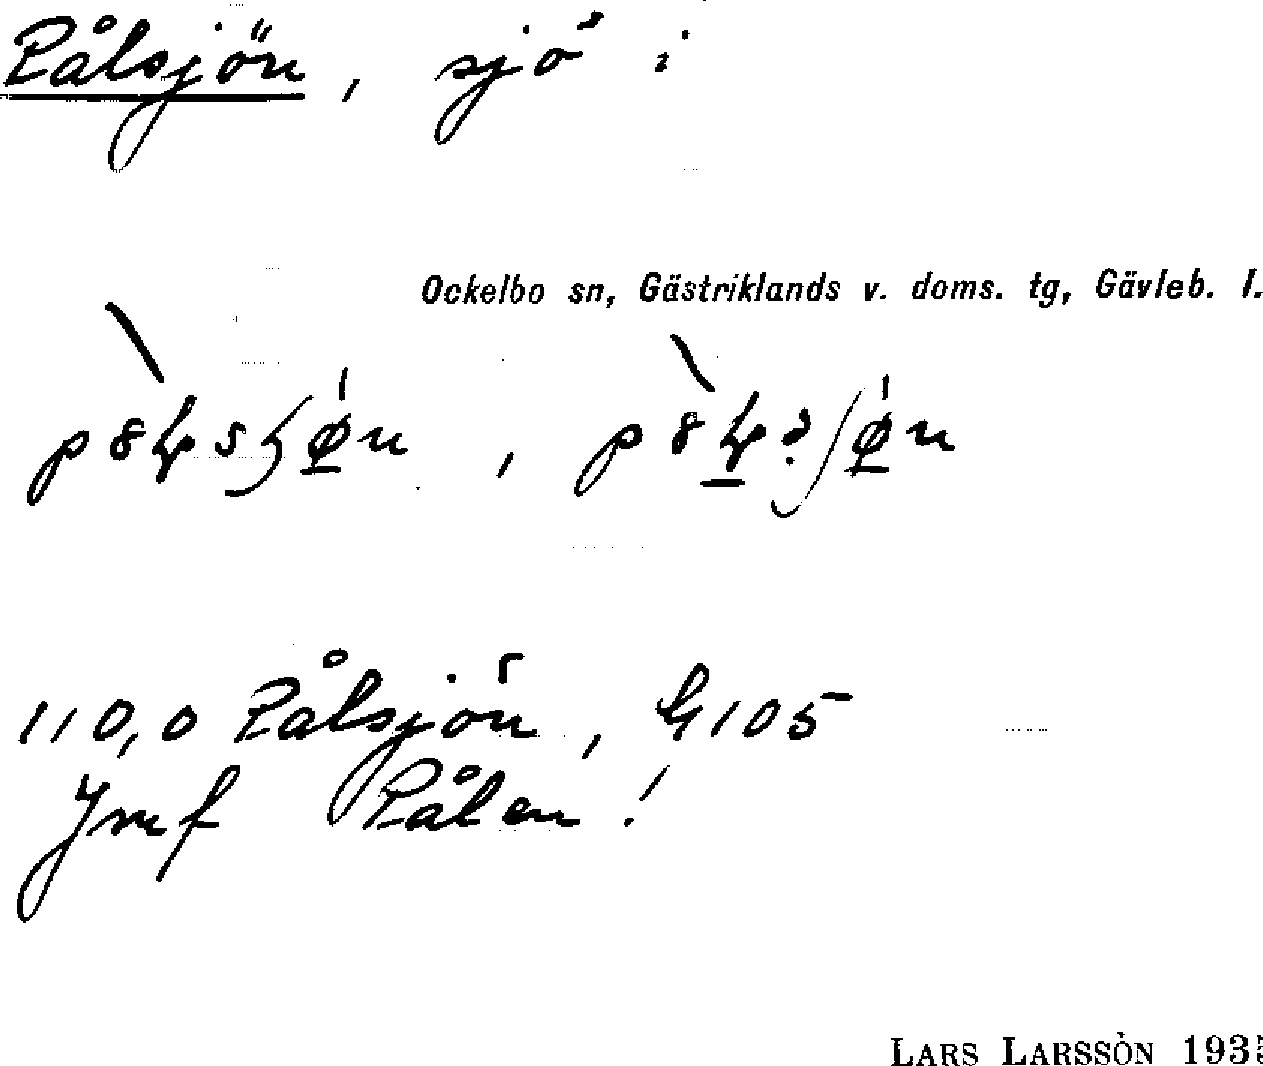 Pålsjön, sjö i
Ockelbo sn, Gästriklands v. doms. tg, Gävleb. l.
110,0 Pålsjön, G105
Jmf Pålen!
LARS LARSSON 193